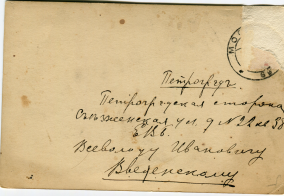 МОС
Петроград.
Петроградская сторона
Съезженская ул. д № 22 кв 38
Е.В.
Всеволоду Ивановичу
Введенскому